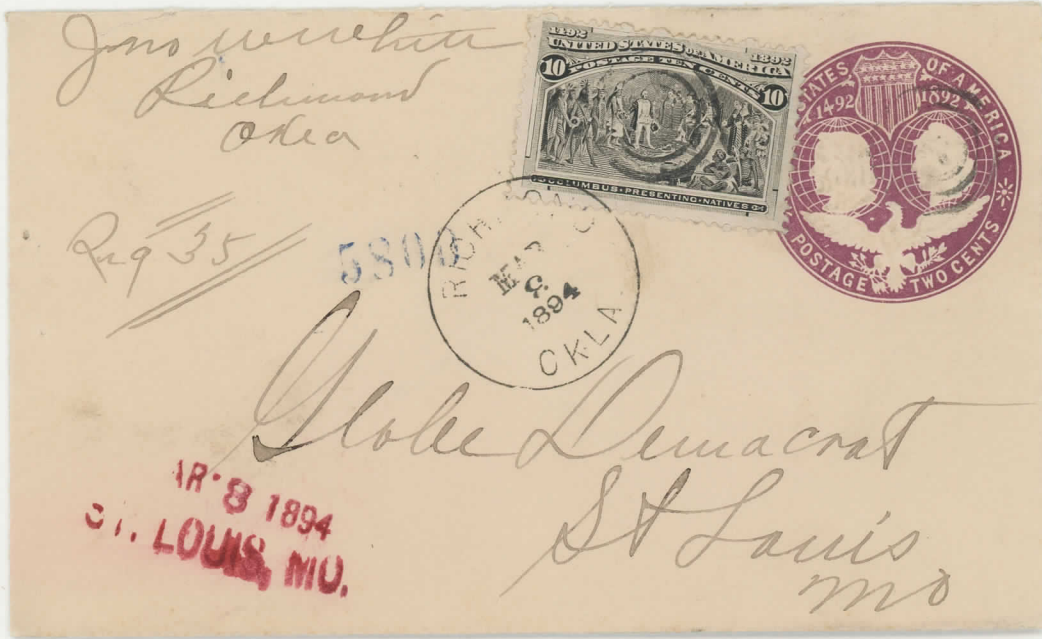 Jno W White
Richmond
Okla
1492
1892
UNITED STATES OF AMERICA
POSTAGE TEN CENTS
10
10
COLUMBUS · PRESENTING · NATIVES
STATES OF AMERICA
1492
1892
POSTAGE TWO CENTS
Reg 35
5803
RICHMOND
MAR
1894
OKLA
Globe Democrat
St Louis
Mo
AR 8 1894
ST. LOUIS, MO.